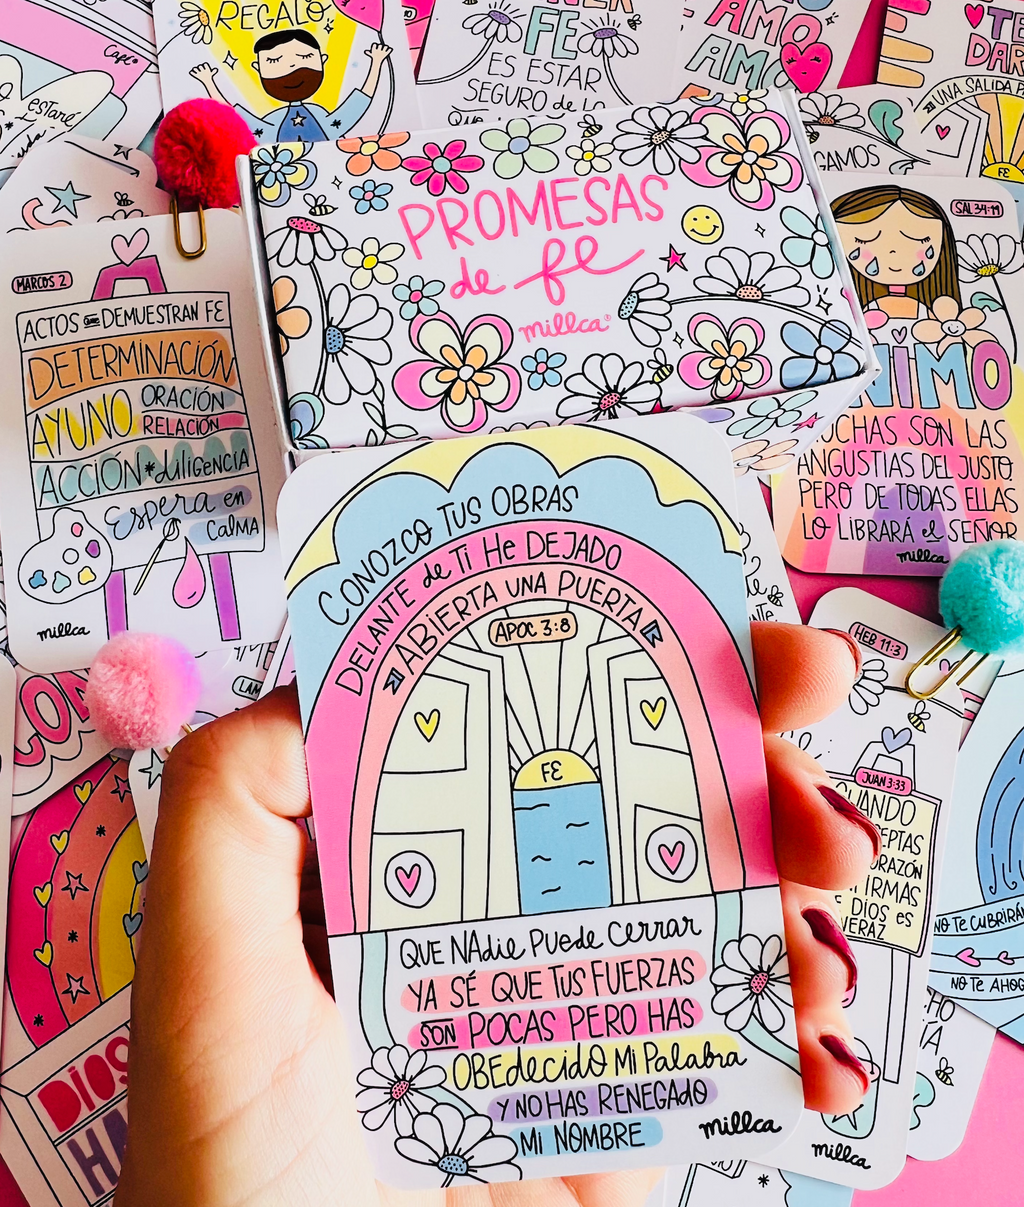 REGALO
Capé
FE
ES ESTAR
SEGURO de LO
AMO
AMO
TE
DAR
UNA SALIDA
FE
GAMOS
PROMESAS
de fe
millca
SAL 34:19
MUCHAS SON LAS
ANGUSTIAS DEL JUSTO,
PERO DE TODAS ELLAS
LO LIBRARÁ el SEÑOR
millca
MARCOS 2
ACTOS QUE DEMUESTRAN FE
DETERMINACIÓN
AYUNO
ORACIÓN
RELACIÓN
ACCIÓN * diligENCIA
Espera en
CalMA
millca
CONOZCO TUS OBRAS
DELANTE de Ti He DEJADO
ABIERTA UNA PUERTA
APOC 3:8
FE
QUE NAdie PUede Cerrar
YA SÉ QUE TUS FUERZAS
SON POCAS PERO HAS
OBEdecidO Mi Palabra
Y NO HAS RENEGADO
MI NOMBRE
millca
HEB 11:3
JUAN 3:33
CUANDO
DIOS es
VERAZ
millca
NO TE CUBRIRÁN
NO Te AHOG
DIOS
HA